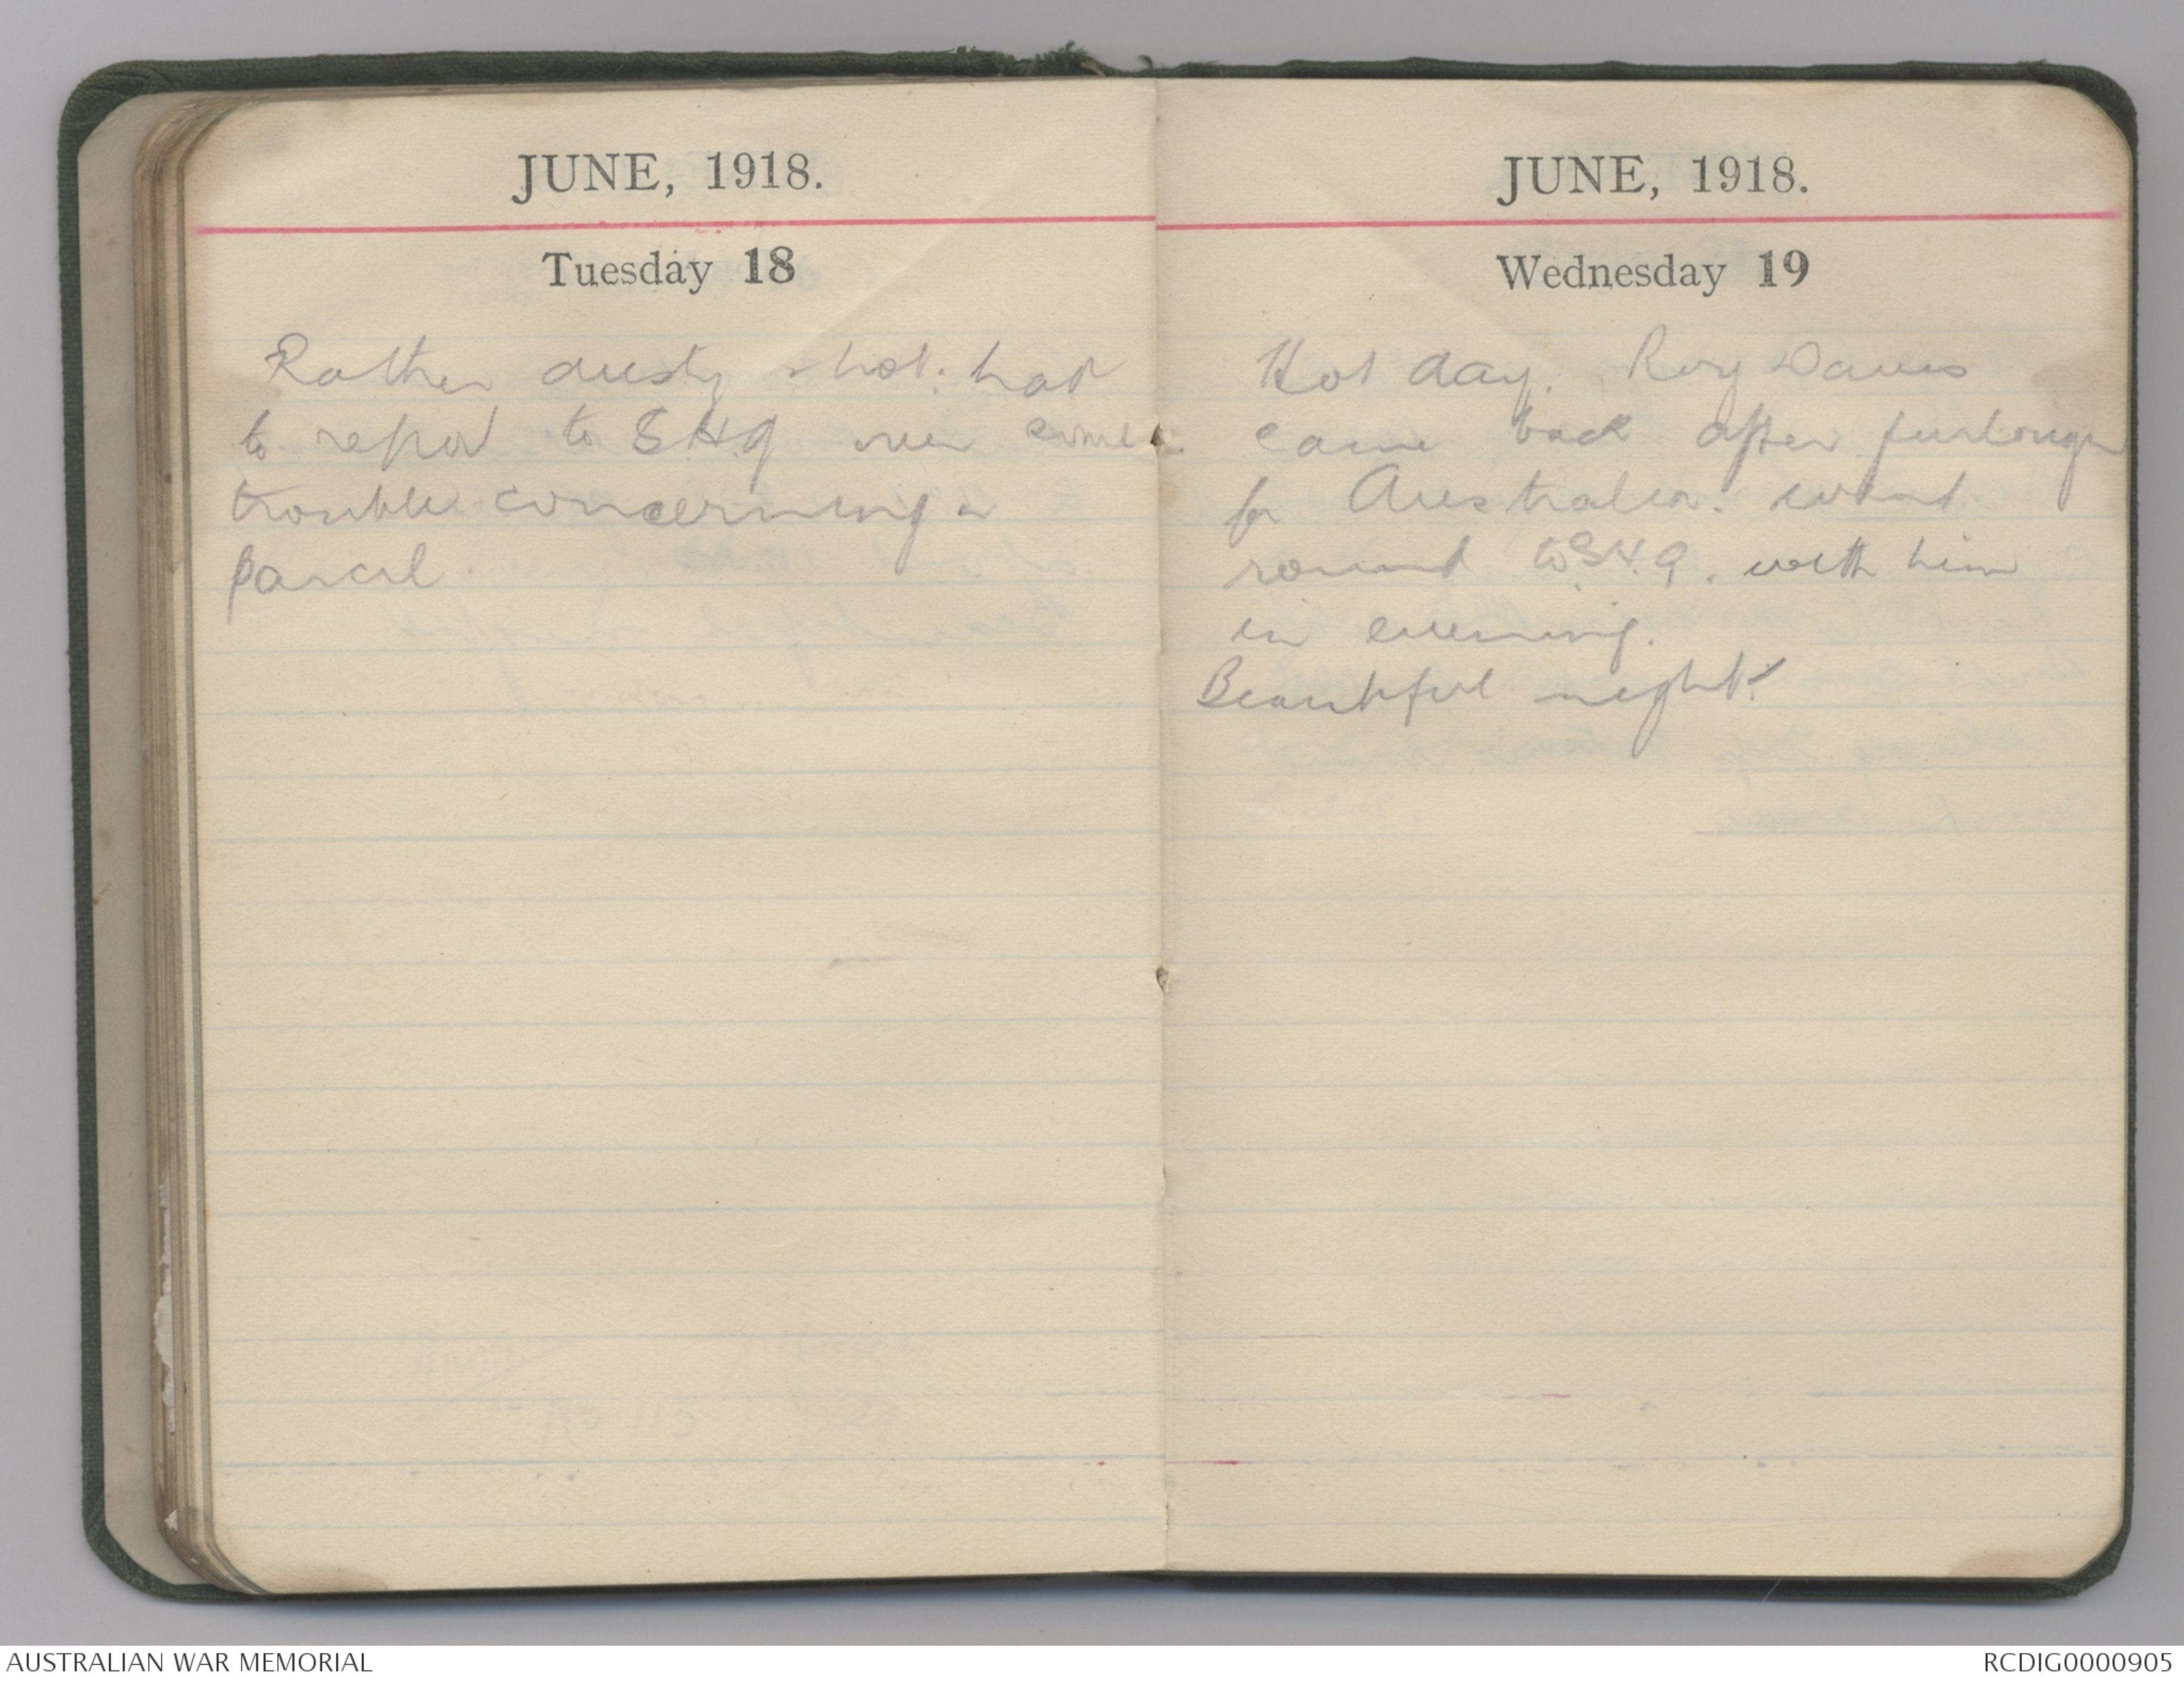 JUNE, 1918.
Tuesday 18
Rather dusty & hot. had
to report to SHQ over some
trouble concerning a
parcel.
JUNE, 1918.
Wednesday 19
Hot day. Roy Davis
came back after furlough
for Australia. went
round to S.H.Q. with him
in evening.
Beautiful night.
AUSTRALIAN WAR MEMORIAL
RCDIG0000905